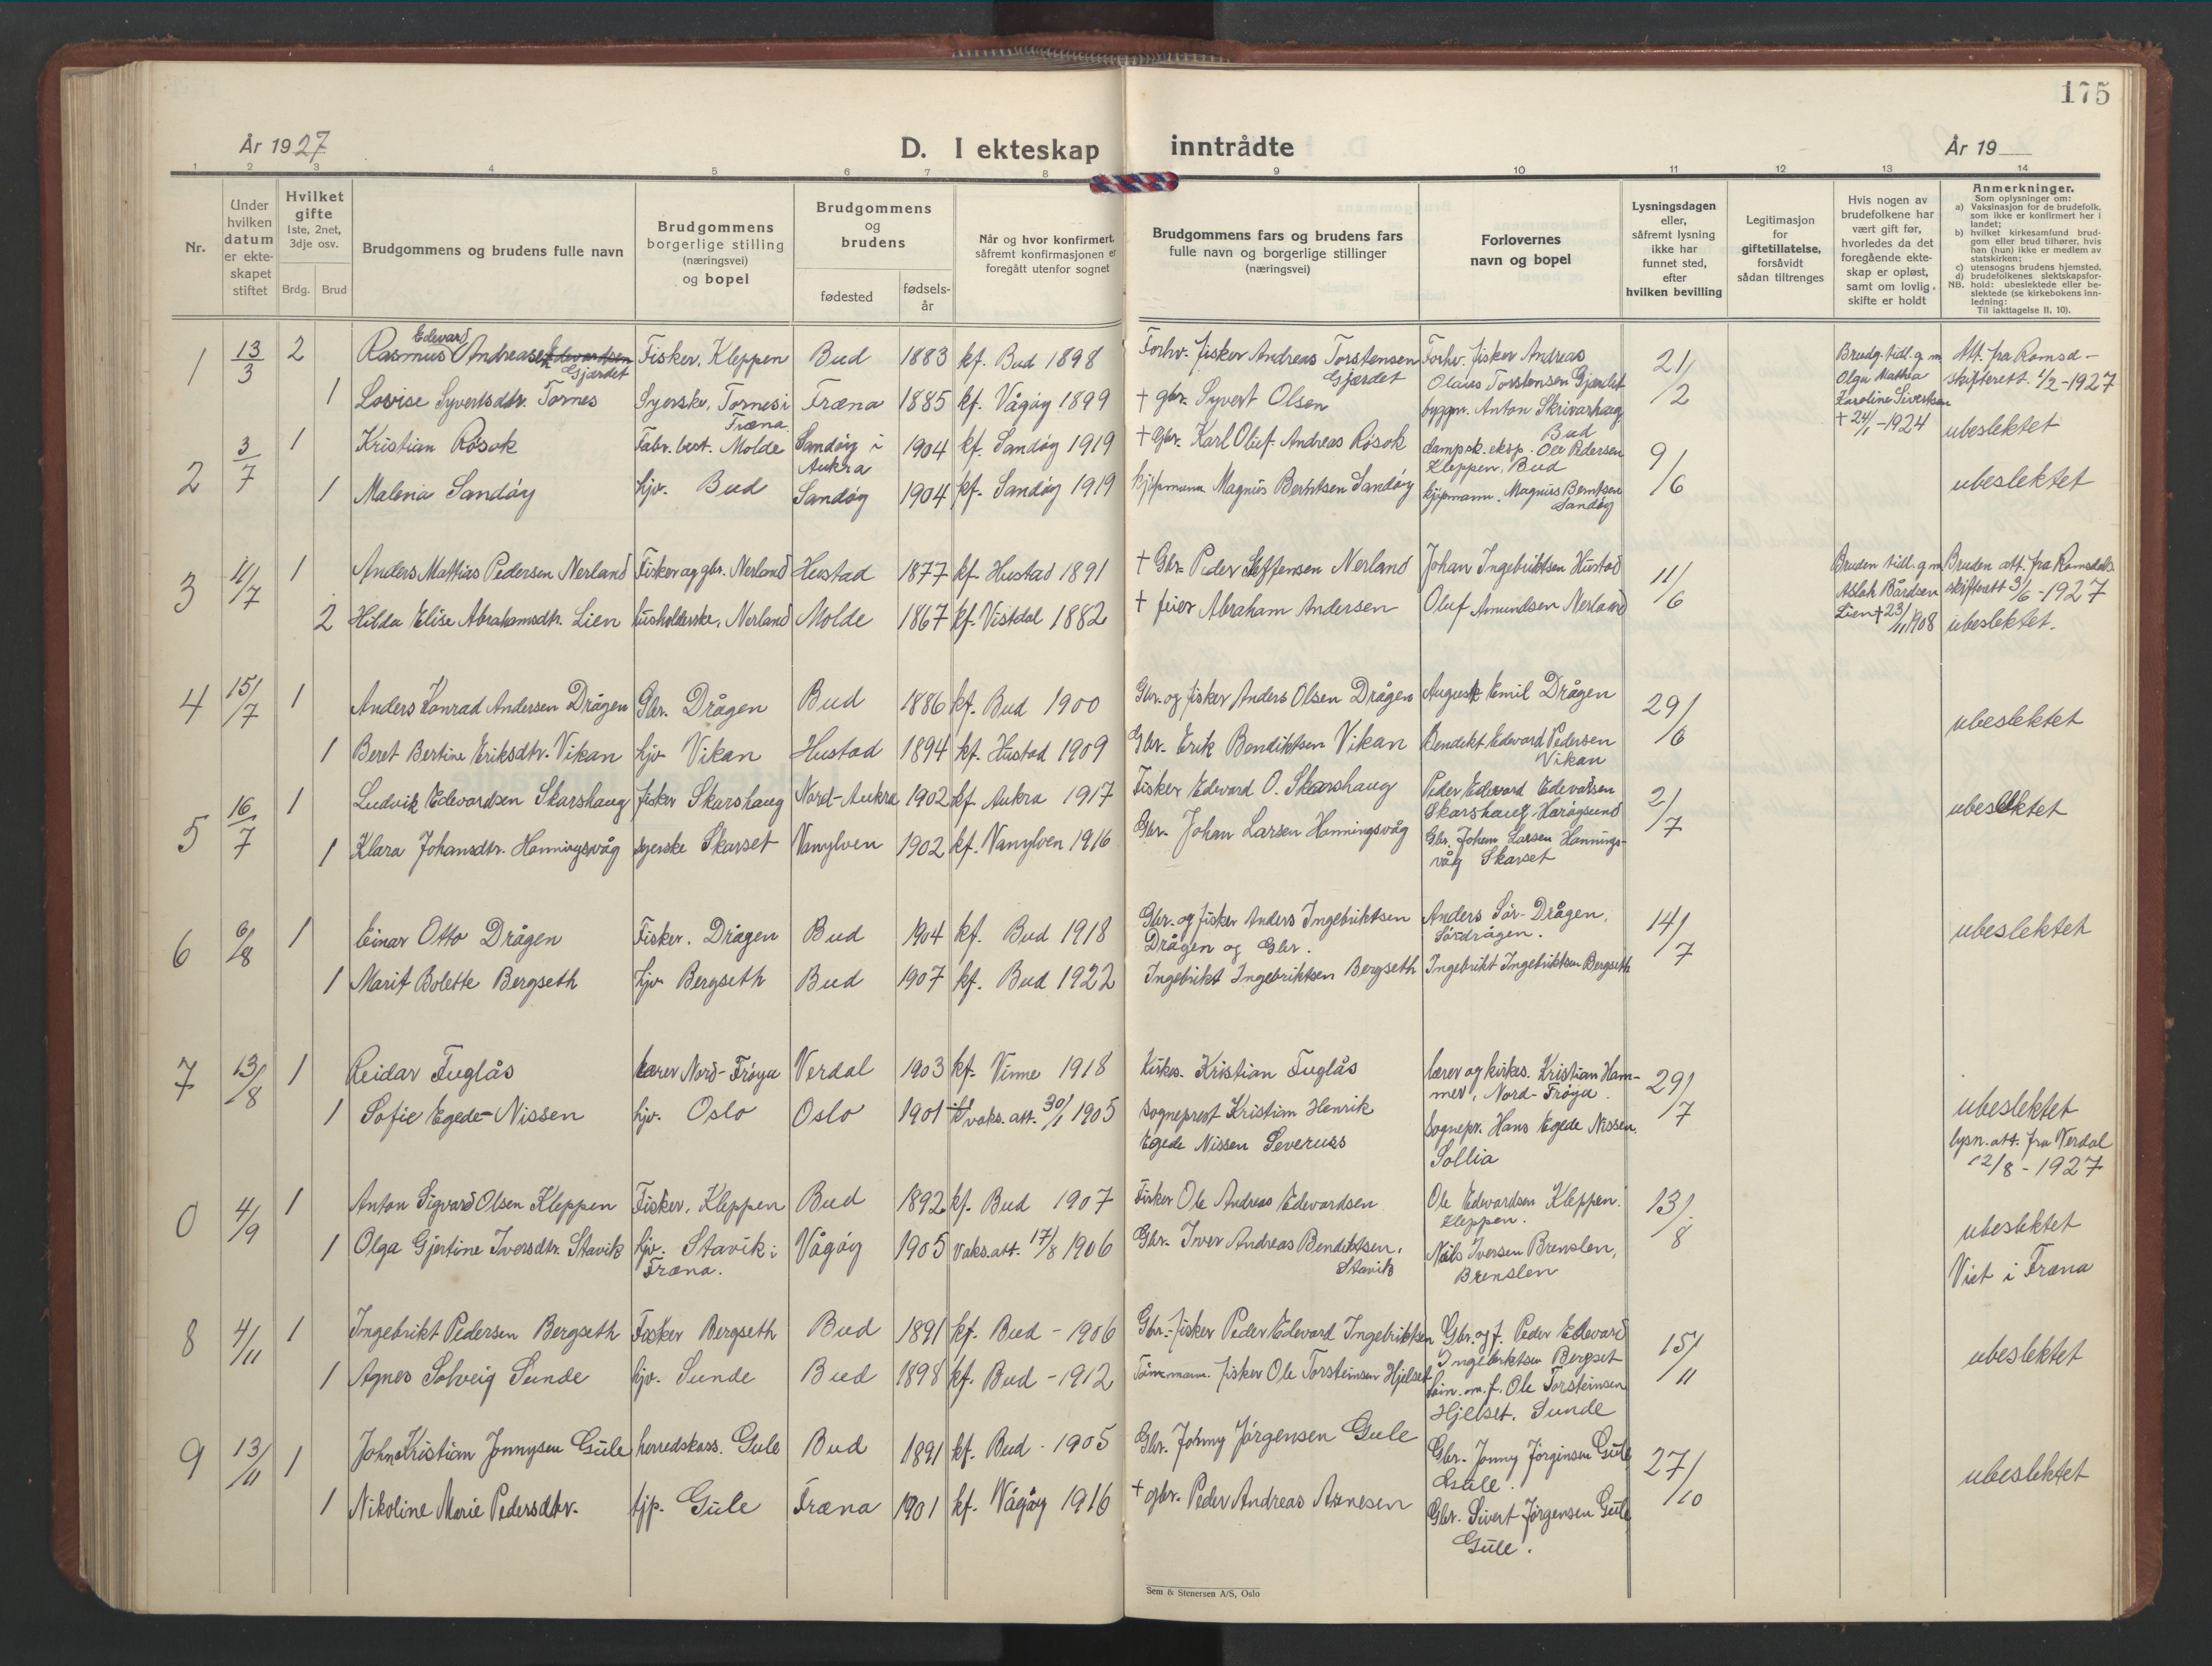 175
År 1927
D. I ekteskap inntrådte
År 19
1 2 3 4 5 6 7 8 9 10 11 12 13 14
Nr.
Under hvilken datum er ekte-skapet stiftet
Hvilket gifte 1ste, 2net, 3dje osv.
Brdg. Brud
Brudgommens og brudens fulle navn
Brudgommens borgerlige stilling (næringsvei) og bopel
Brudgommens og brudens
fødested
fødsels-år
Når og hvor konfirmert, såfremt konfirmasjonen er foregått utenfor sognet
Brudgommens fars og brudens fars fulle navn og borgerlige stillinger (næringsvei)
Forlovernes navn og bopel
Lysningsdagen eller, såfremt lysning ikke har funnet sted, efter hvilken bevilling
Legitimasjon for giftetillatelse, forsåvidt sådan tiltrenges
Hvis nogen av brudefolkene har vært gift før, hvorledes da det foregående ekte-skap er opløst, samt om lovlig skifte er holdt
Anmerkninger.
Som oplysninger om:
a) Vaksinasjon for de brudefolk, som ikke er konfirmert her i landet;
b) hvilket kirkesamfund brud-gom eller brud tilhører, hvis han (hun) ikke er medlem av statskirken;
c) utensogns brudens hjemsted,
d) brudefolkenes slektskapsfor-hold: ubeslektede eller be-slektede (se kirkebokens inn-ledning:
NB.
Til iakttagelse II, 10).
1 13/3 2 Rasmus Edevard Andreasen Edvardsen Gjærdet Fisker, Kleppen Bud 1883 kf. Bud 1898 Forhv. fisker Andreas Torstensen Gjærdet Forhv. fisker Andreas Olaus Torstensen Gjærdet 21/2 Brudg. tidl. g. m. Olga Mathea Karoline Sivertsen + 24/1-1924 Att. fra Romsd-skifterett. 1/2-1927
1 Lovise Syvertsdtr. Tornes Syerske, Tornes i Fræna. Fræna 1885 kf. Vågøy 1899 + gbr. Syvert Olsen byggm. Anton Skrivarhaug Bud ubeslektet
2 3/7 1 Kristian Røsok Fabr. best. Molde Sandøy i Aukra 1904 kf. Sandøy 1919 + Gbr. Karl Oluf Andreas Røsok dampsk. eksp. Ole Pedersen Kleppen, Bud 9/6
1 Malena Sandøy hjv. Bud Sandøy 1904 kf. Sandøy 1919 kjøpmann Magnus Berntsen Sandøy kjøpmann. Magnus Berntsen Sandøy ubeslektet
3 4/7 1 Anders Mathias Pedersen Nerland Fisker og gbr. Nerland Hustad 1877 kf. Hustad 1891 + Gbr. Peder Steffensen Nerland Johan Ingebriktsen Hustad 11/6 Bruden tidl. g m Aslak Bårdsen Lien + 23/11 1908 Bruden att. fra Romsdals skifterett 3/6-1927
2 Hilda Elise Abrahamsdtr. Lien husholderske, Nerland Molde 1867 kf. Vistdal 1882 + feier Abraham Andersen Oluf Amundsen Nerland ubeslektet.
4 15/7 1 Anders Konrad Andersen Drågen Gbr. Drågen Bud 1886 kf. Bud 1900 Gbr. og fisker Anders Olsen Drågen August Emil Drågen 29/6 ubeslektet
1 Beret Bertine Eriksdtr. Vikan hjv. Vikan Hustad 1894 kf. Hustad 1909 Gbr. Erik Bendiktsen Vikan Bendikt Edevard Pedersen Vikan
5 16/7 1 Ludvik Edevardsen Skarshaug fisker Skarshaug Nord-Aukra 1902 kf. Aukra 1917 Fisker Edevard O. Skarshaug Peder Edevard Edevardsen Skarshaug Harøysund 2/7 ubeslektet
1 Klara Johansdtr. Honningsvåg syerske Skarset Vanylven 1902 kf. Vanylven 1916 Gbr. Johan Larsen Honningsvåg Gbr. Johan Larsen Honnings-våg Skarset
6 6/8 1 Einar Otto Drågen Fisker. Drågen Bud 1904 kf. Bud 1918 Gbr. og fisker Anders Ingebriktsen Drågen og Gbr. Anders Sør-Drågen, Sørdrågen. 14/7 ubeslektet
1 Marit Bolette Bergseth hjv. Bergseth Bud 1907 kf. Bud 1922 Ingebrikt Ingebriktsen Bergseth Ingebrikt Ingebriktsen Bergseth
7 13/8 1 Reidar Fuglås lærer Nord-Frøya Verdal 1903 kf. Vinne 1918 Kirkes. Kristian Fuglås lærer og kirkes. Kristian Ham-mer, Nord-Frøya. 29/7 ubeslektet
1 Sofie Egede-Nissen hjv. Oslo Oslo 1901 vaks. att. 30/1 1905 Sogneprest Kristian Henrik Egede Nissen Severuss Sognepr. Hans Egede Nissen. Sollia lysn. att. fra Verdal 12/8-1927
0 4/9 1 Anton Sigvard Olsen Kleppen Fisker, Kleppen Bud 1892 kf. Bud 1907 Fisker Ole Andreas Edevardsen Ole Edevardsen Kleppen. Kleppen. 13/8 ubeslektet
1 Olga Gjertine Iversdtr. Stavik hjv. Stavik i Fræna. Vågøy 1905 vaks. att. 17/8 1906 Gbr. Iver Andreas Bendiktsen, Stavik Nils Iversen Brenslen, Brenslen Viet i Fræna
8 4/11 1 Ingebrikt Pedersen Bergseth Fisker Bergseth Bud 1891 kf. Bud - 1906 Gbr.-fisker Peder Edevard Ingebriktsen Gbr. og f. Peder Edevard Ingebriktsen Bergset 15/11 ubeslektet
1 Agnes Solveig Sunde hjv. Sunde Bud 1898 kf. Bud - 1912 Tømmerm. fisker Ole Torsteinsen Hjelset Ole Torsteinsen Hjelset. Sunde
9 13/11 1 John Kristian Jonnysen Gule herredskass. Gule Bud 1891 kf. Bud - 1905 Gbr. Johnny Jørgensen Gule Gbr. Jonny Jørginsen Gule Gule. 27/10 ubeslektet
1 Nikoline Marie Pedersdtr. tjp. Gule Fræna 1901 kf. Vågøy 1916 + gbr. Peder Andreas Arnesen Gbr. Sivert Jørgensen Gule Gule.
Sem & Stenersen A/S, Oslo